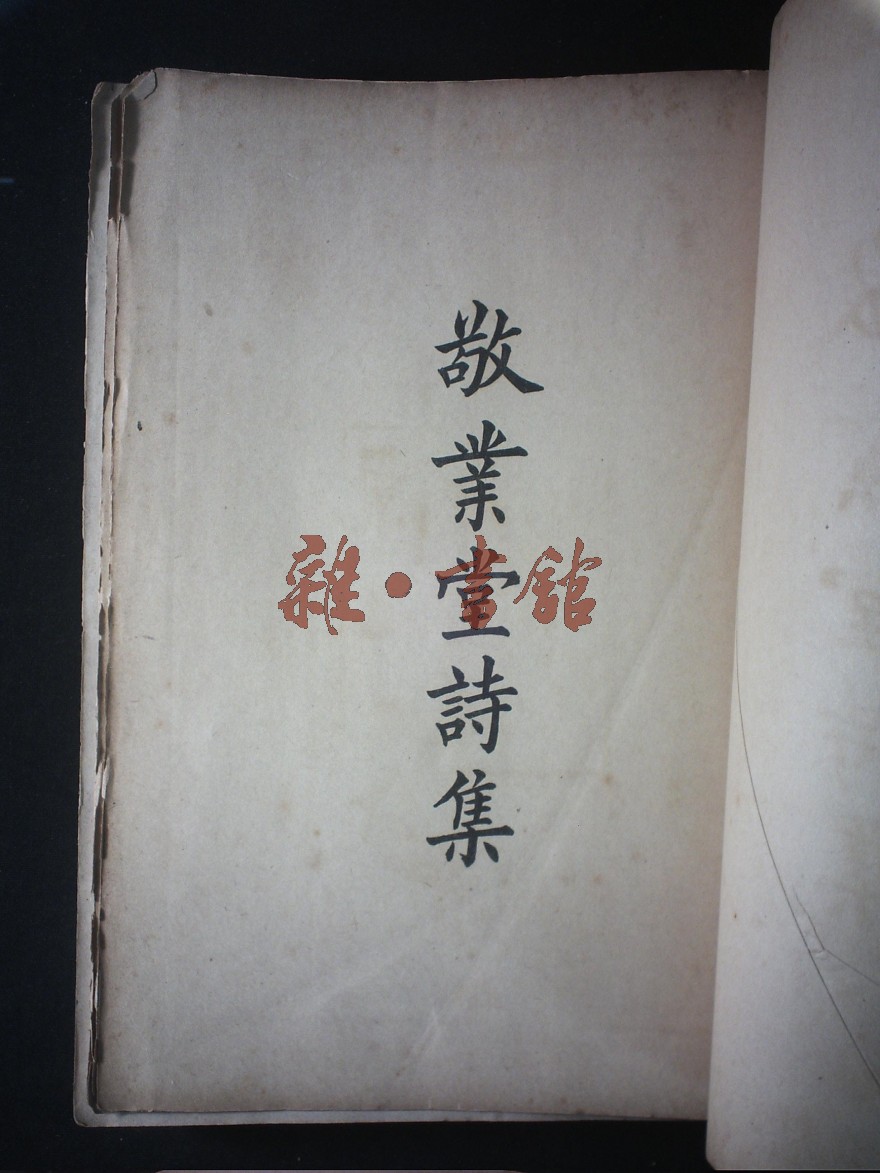 敬業堂詩集
雜·書館